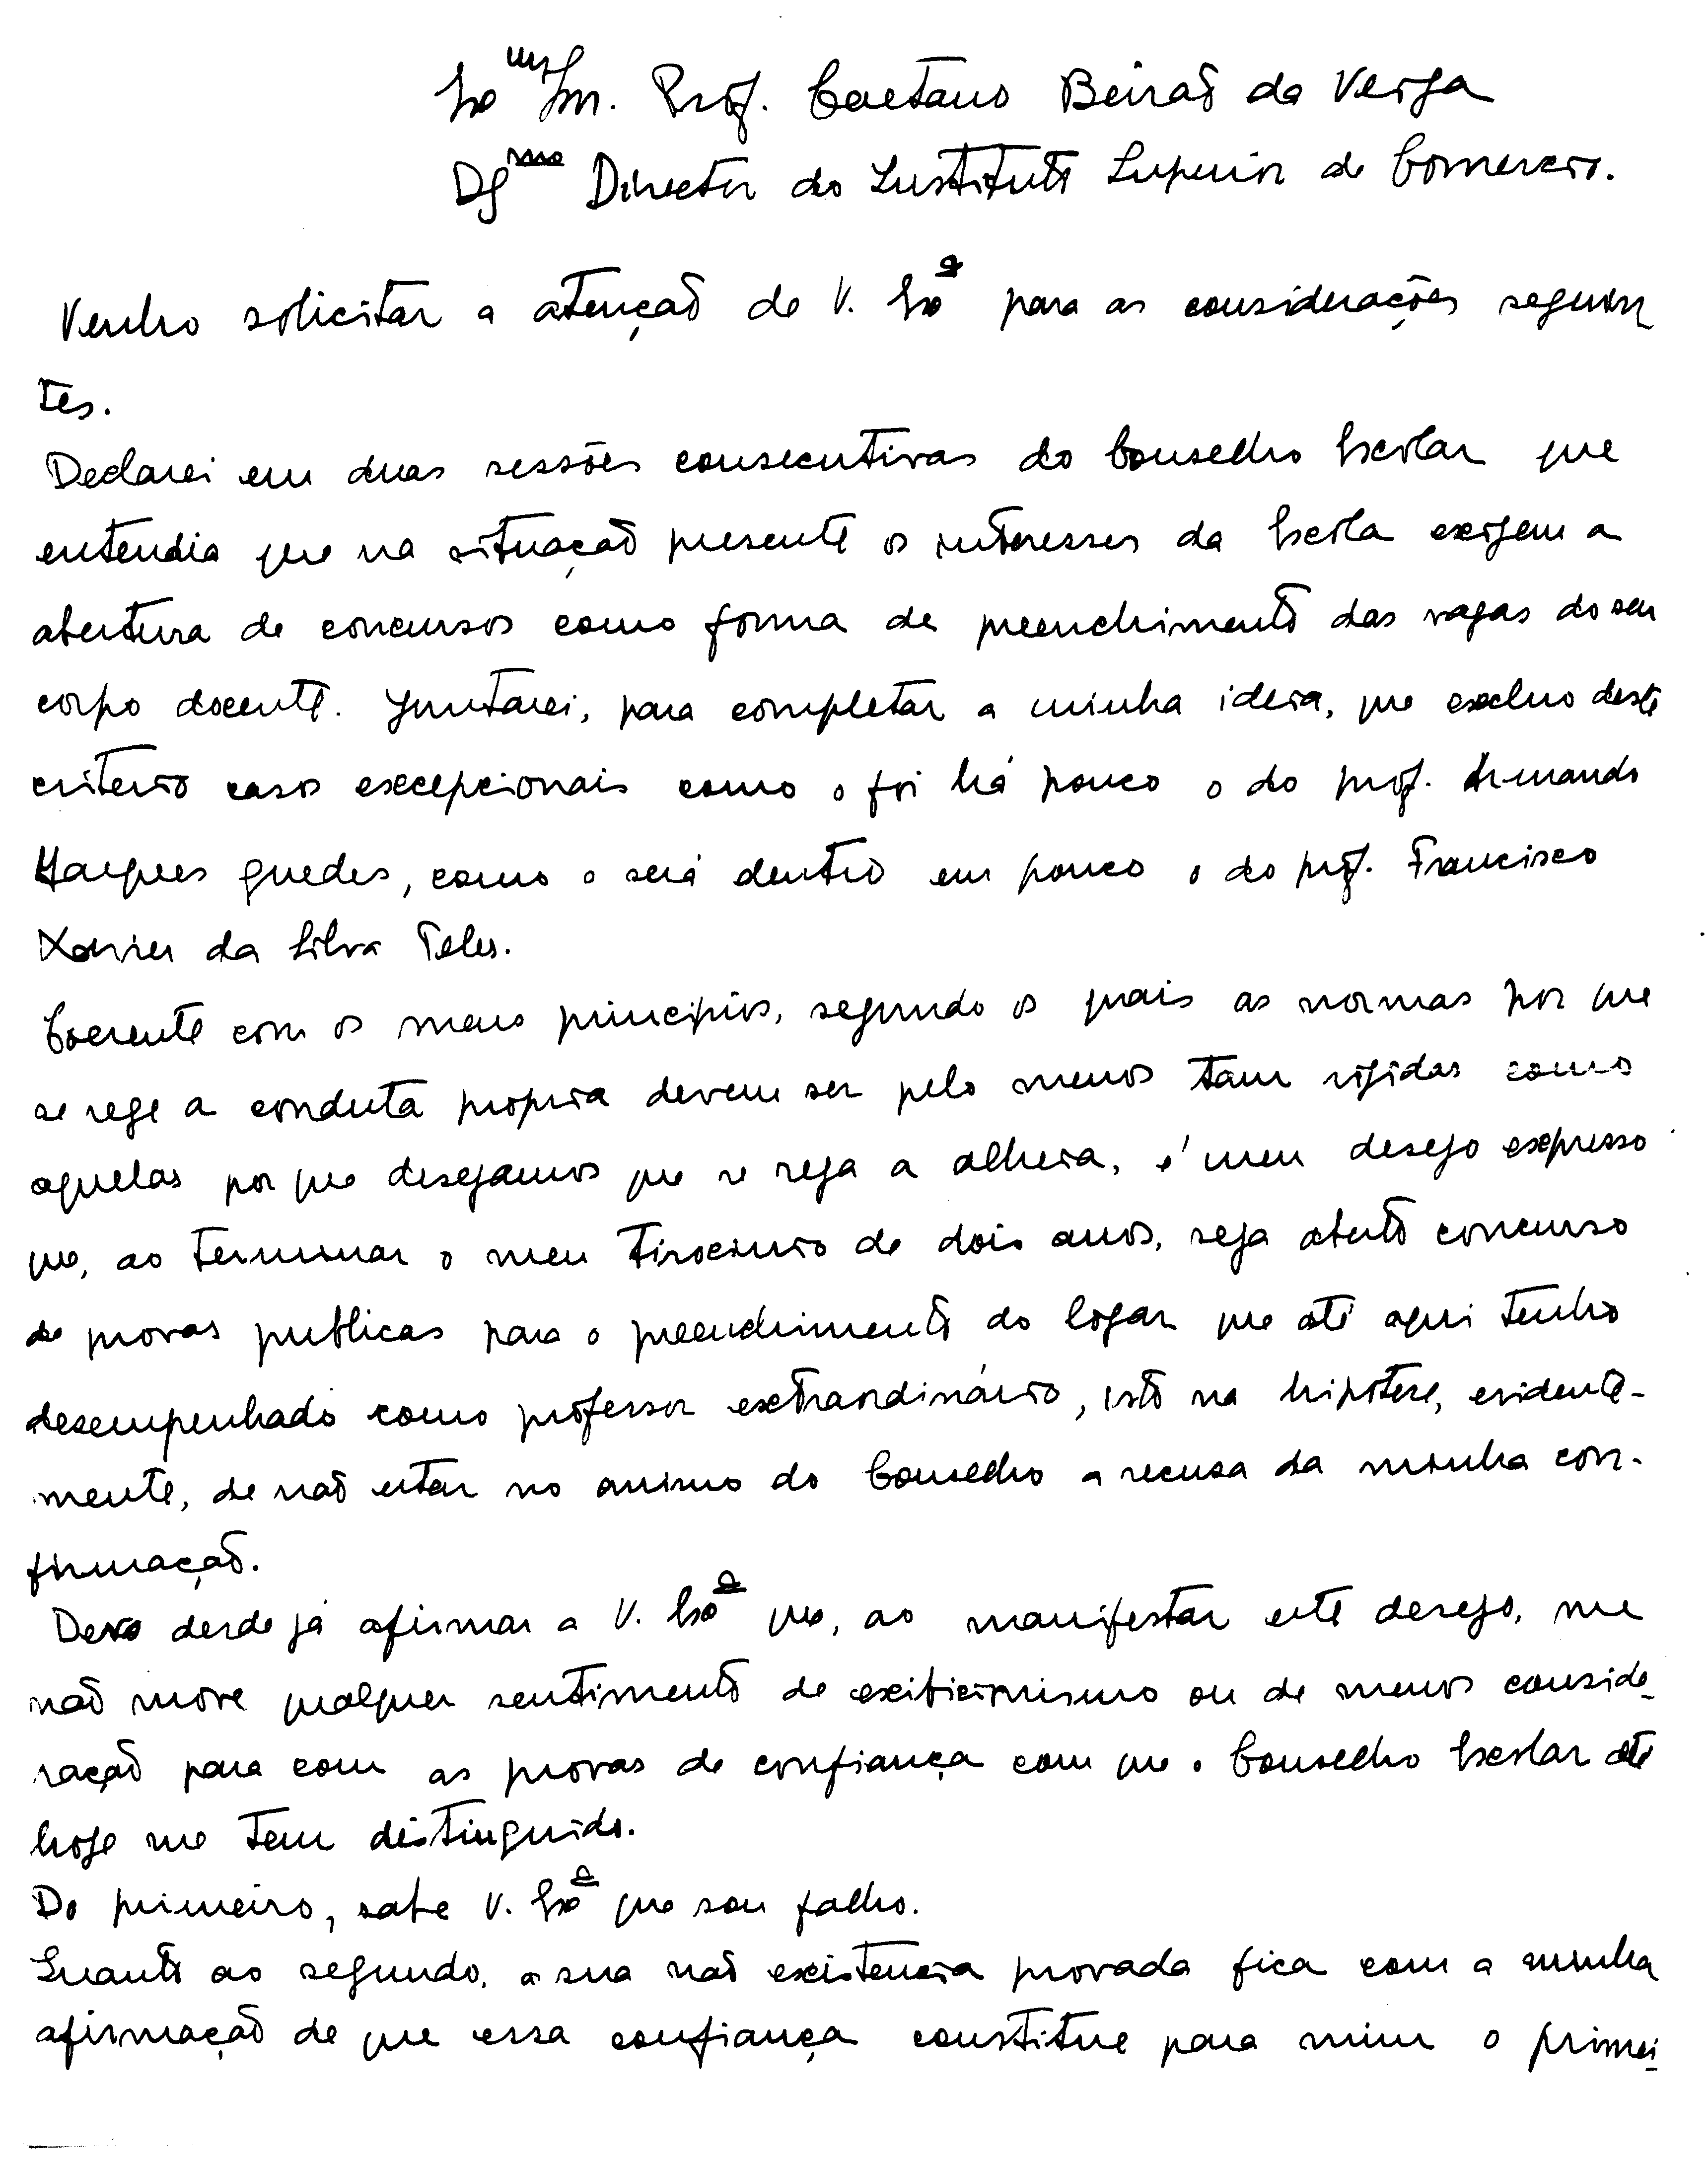 Exmo Snr. Prof. Caetano Beirão da Veiga
Dgmo Director do Instituto Superior de Comercio.
Venho solicitar a atenção de V. Exª para as considerações seguin-
tes.
Declarei em duas sessões consecutivas do Conselho Escolar que
entendia que na situação presente os interesses da Escola exigem a
abertura de concursos como forma de preenchimento das vagas do seu
corpo docente. Juntarei, para completar a minha ideia, que excluo deste
criterio casos excepcionais como o foi há pouco o do prof. Armando
Marques Guedes, como o será dentro em pouco o do prof. Francisco
Xavier da Silva Teles.
Coerente com os meus principios, segundo os quais as normas por que
se rege a conduta propria devem ser pelo menos tam rigidas como
aquelas por que desejamos que se reja a alheia, é meu desejo expresso
que, ao terminar o meu tirocinio de dois anos, seja aberto concurso
de provas publicas para o preenchimento do logar que até aqui tenho
desempenhado como professor extraordinário, isto na hipotese, evidente-
mente, de não estar no animo do Conselho a recusa da minha con-
firmação.
Devo desde já afirmar a V. Exª que, ao manifestar este desejo, me
não move qualquer sentimento de exibicionismo ou de menos conside-
ração para com as provas de confiança com que o Conselho Escolar até
hoje me tem distinguido.
Do primeiro, sabe V. Exª que sou falho.
Quanto ao segundo, a sua não existencia provada fica com a minha
afirmação de que essa confiança constitue para mim o primei-